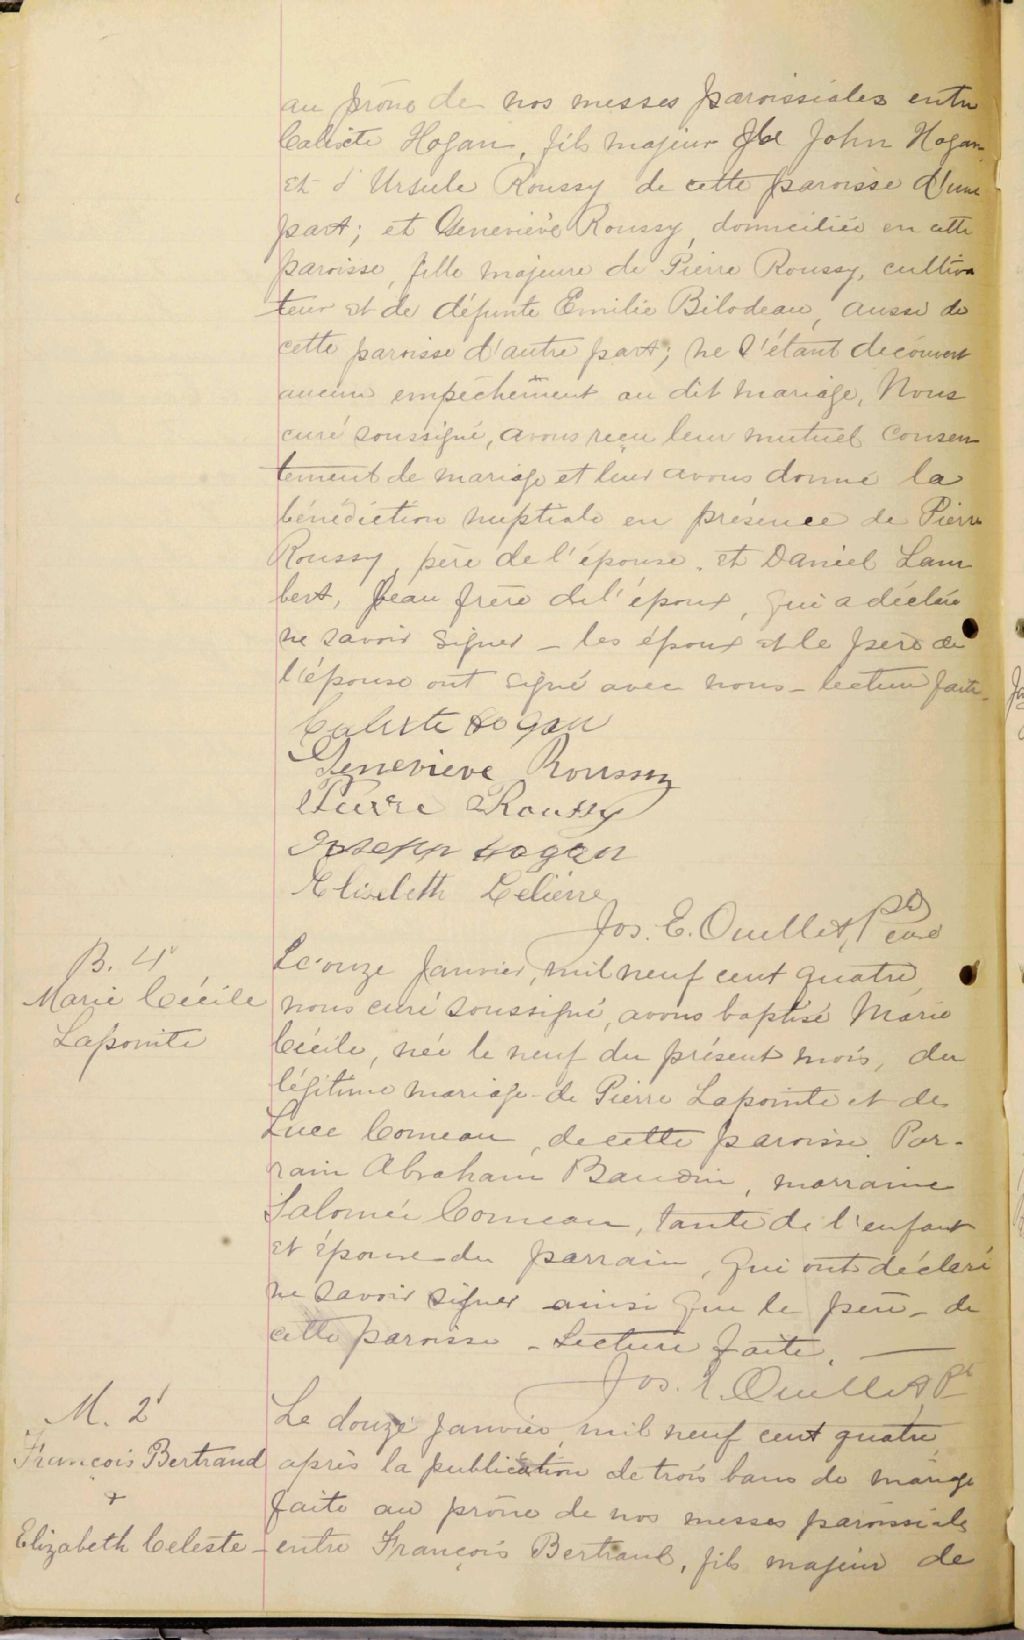 au prône de nos messes paroissiales entre
Calixte Hogan, fils majeur de John Hogan
et d'Ursule Roussy de cette paroisse d'une
part; et Geneviève Roussy, domiciliée en cette
paroisse, fille majeure de Pierre Roussy, cultiva
teur et de défunte Emilie Bilodeau, aussi de
cette paroisse d'autre part; ne s'étant découvert
aucun empêchement au dit mariage, Nous
curé soussigné, avons reçu leur mutuel consen
tement de mariage et leur avons donné la
bénédiction nuptiale en présence de Pierre
Roussy, père de l'épouse, et Daniel Lam
bert, beau frère de l'époux, qui a déclaré
ne savoir signer – les époux et le père de
l'épouse ont signé avec nous – lecture faite –
Calixte Hogan
Genevieve Roussy
Pierre Roussy
Joseph Hogan
Elizabeth
Jos. E. Ouellet, Ptre curé
B. 4
Marie Cécile
Lapointe
Le onze Janvier, mil neuf cent quatre,
nous curé soussigné, avons baptisé Marie
Cécile, née le neuf du présent mois, du
légitime mariage de Pierre Lapointe et de
Luce Comeau, de cette paroisse. Par-
rain Abraham Baudin, marraine
Salomée Comeau, tante de l'enfant
et épouse du parrain, qui ont déclaré
ne savoir signer ainsi que le père – de
cette paroisse – Lecture faite. —
Jos. E. Ouellet, Pt
M. 2
François Bertrand
+
Elizabeth Celeste –
Le douze Janvier, mil neuf cent quatre,
après la publication de trois bans de mariage
faite au prône de nos messes paroissiales
entre François Bertrand, fils majeur de